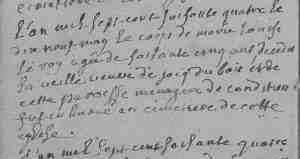 L'an mil sept cent soisante quatre le
dix neuf may le corps de marie Louise
le roy agée de soisante cinq ans decedée
la veille veuve de jacq du bois de
cette paroisse menagere de condition
fut inhumé au cimetiere de cette
eglise.
L'an mil sept cent soisante quatre